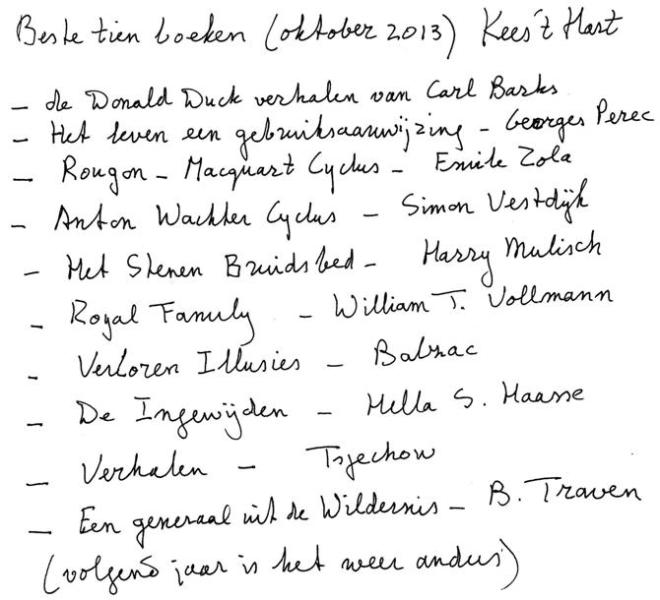 Beste tien boeken (oktober 2013) Kees 't Hart
- de Donald Duck verhalen van Carl Barks
- Het leven een gebruiksaanwijzing - Georges Perec
- Rougon - Macquart Cyclus - Emile Zola
- Anton Wachter Cyclus - Simon Vestdijk
- Het Stenen Bruidsbed - Harry Mulisch
- Royal Family - William T. Vollmann
- Verloren Illusies - Balzac
- De Ingewijden - Hella S. Haasse
- Verhalen - Tsjechow
- Een generaal uit de Wildernis - B. Traven
(volgend jaar is het weer anders)